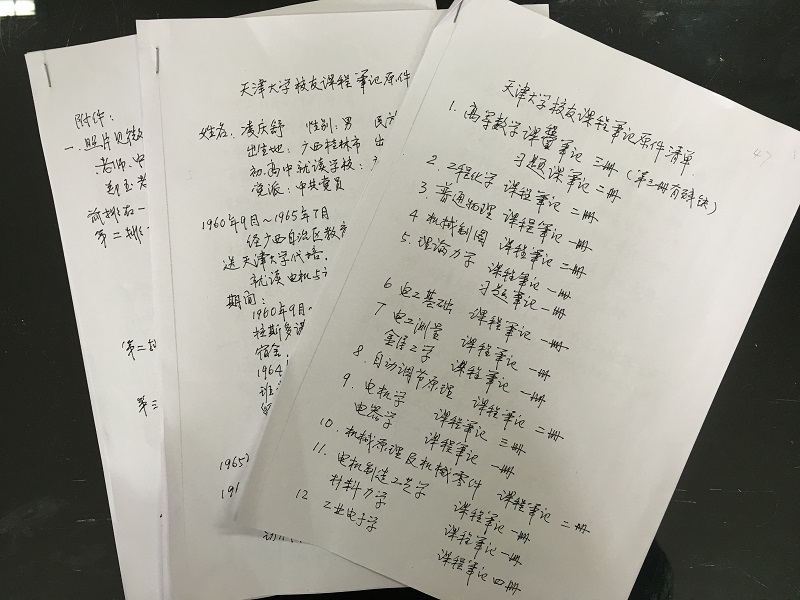 附件：
一.照片
老师.中
第二排
第三
天津大学校友课程笔记原件
姓名：凌庆舒 性别：男 民
出生地：广西桂林市 出
初.高中就读学校：
党派：中共党员
1960年9月～1965年7月
经广西自治区教育
送天津大学代培.
就读电机
期间：
1960年9月
宿舍
1964
班
1965
天津大学校友课程笔记原件清单
1. 高等数学课堂笔记 三册（第三册有残缺）
习题课笔记 二册
2. 工程化学 课程笔记 二册
3. 普通物理 课程笔记 一册
4 机械制图 课程笔记 二册
5. 理论力学 课程笔记 一册
习题笔记 一册
6 电工基础 课程笔记 一册
7 电工测量 课程笔记 一册
金属工学 课程笔记 一册
8. 自动调节原理 课程笔记 二册
9. 电机学 课程笔记 三册
电器学 课程笔记 一册
10. 机械原理及机械零件 课程笔记 二册
11. 电机制造工艺学 课程笔记 一册
材料力学 课程笔记 一册
12 工业电子学 课程笔记 四册
47